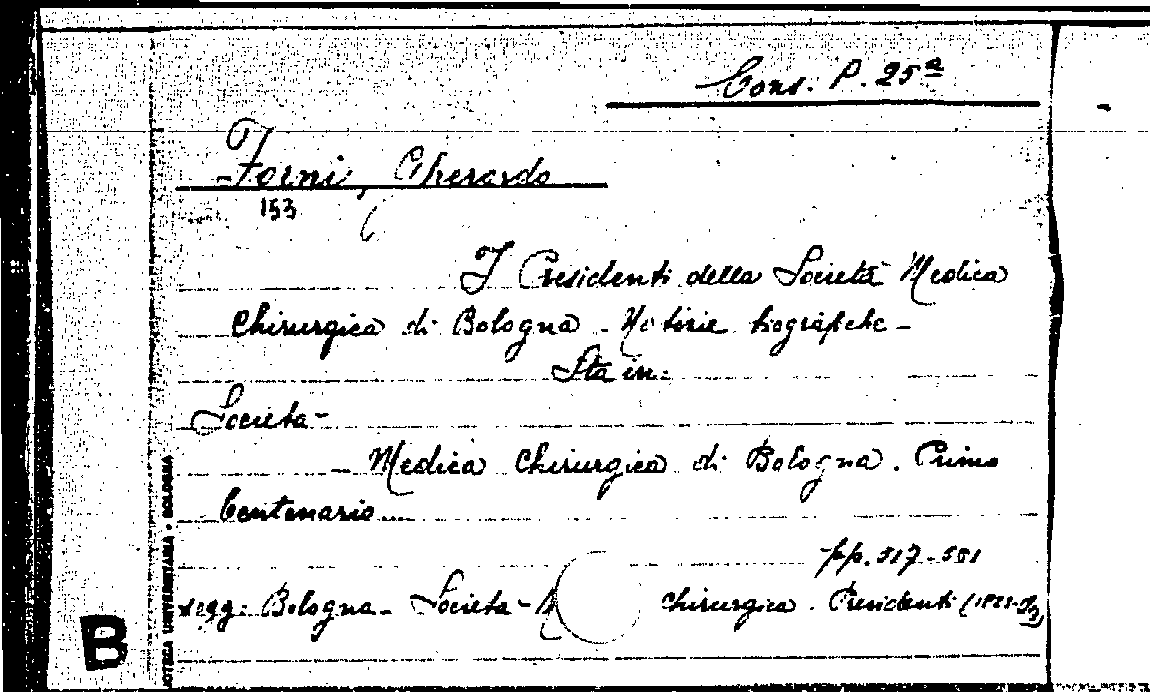 Cons. P. 25ª
Forni, Gherardo
153
I Presidenti della Società Medica
Chirurgica di Bologna - Notizie biografiche -
Sta in:
Società -
Medica Chirurgica di Bologna. Primo
Centenario...
pp. 517-581
sogg: Bologna - Società - Chirurgica. Presidenti
B
UNIVERSITARIA • BOLOGNA